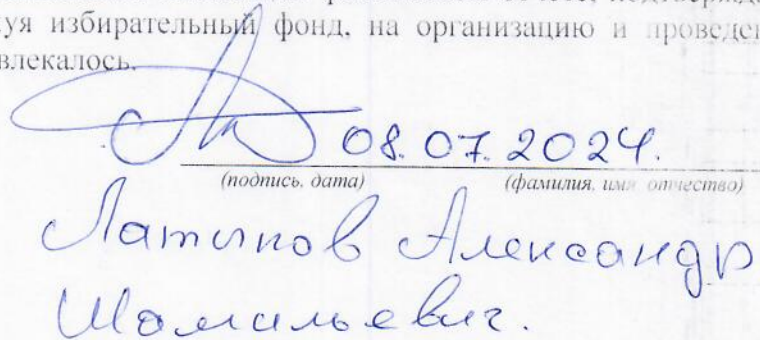 уя избирательный фонд, на организацию и проведен
влекалось.
08.07.2024.
(подпись, дата) (фамилия, имя отчество)
Латыпов Александр
Шамильевич.